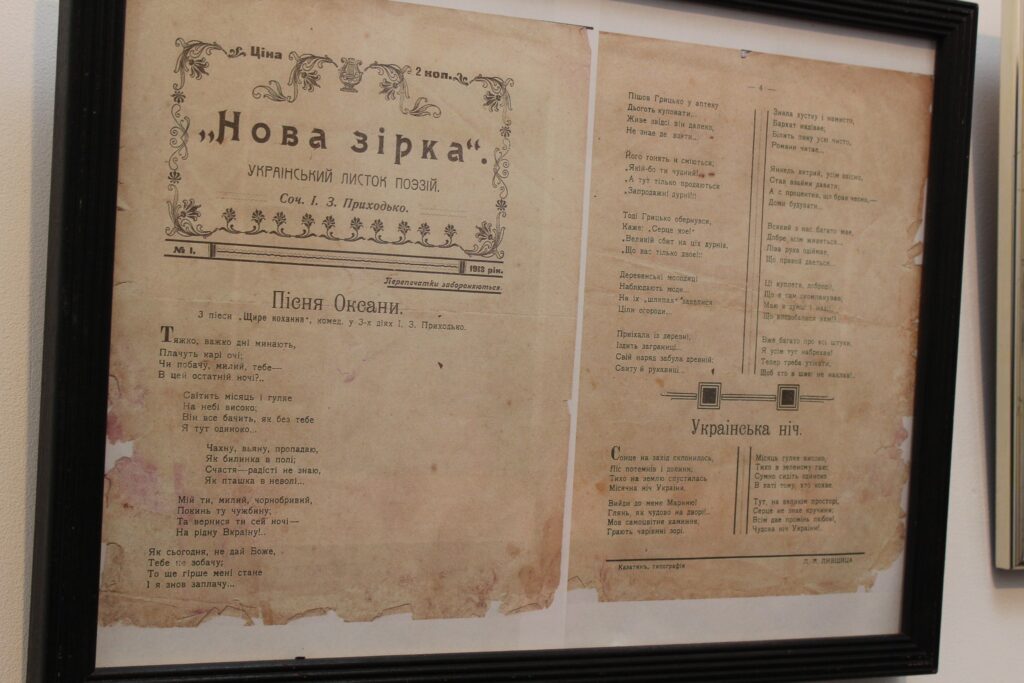 Ціна
2 коп.
„Нова зірка“.
УКРАЇНСЬКИЙ ЛИСТОК ПОЭЗІЙ.
Соч. І. З. Приходько.
№ 1.
1913 рік.
Перепечатки забороняються.
Пісня Оксани.
З пієси „Щире кохання“, комед. у 3-х діях І. З. Приходько.
Тяжко, важко дні минають,
Плачуть карі очі;
Чи побачу, милий, тебе—
В цей остатній ночі?..
Світить місяць і гуляє
На небі високо;
Він все бачить, як без тебе
Я тут одиноко...
Чахну, вьяну, пропадаю,
Як билинка в полі;
Счастя—радісті не знаю,
Як пташка в неволі...
Мій ти, милий, чорнобривий,
Покинь ту чужбину;
Та вернися ти сей ночі—
На рідну Вкраіну!..
Як сьогодня, не дай Боже,
Тебе не зобачу;
То ще гірше мені стане
І я знов заплачу...
— 4 —
Пішов Грицько у аптеку
Дьоготь куповати...
Живе звідсі він далеко,
Не знае де взяти...
Його гонять и сміються;
„Який-бо ти чудний!..
„А тут только продаються
„Запродажні дурні!!
Тоді Грицько обернувся,
Каже: „Серце моє!
„Великий збит на ціх дурнів,
„Що вас тілько двоє!!
Деревянські молодиці
Наблюдають моди...
На їх „шляпах“
Ціли огороди...
Приіхала із деревні,
Іздить заграниці...
Свій наряд забула древній:
Свиту й рукавиці...
Знала хустку і намисто,
Бархат надіває;
Білить пику усю чисто,
Романи читає...
Янкель хитрий, усім звісно,
Став взайми давати;
А с процентив, що брав чесно,—
Доми будувати...
Всякий з нас багато має,
Добре, всім живеться...
Ліва рука одіймає,
Що правой дається...
Ці куплета, добродії,
Що я сам
Маю в думці і надії,
Що вподобалися вам!!
Вже багато про всі штуки,
Я усім тут набрехав!
Тепер треба утікати,
Щоб хто в шию не наклав!..
Українська ніч.
Сонце на захід склонилось,
Ліс потемнів і долини;
Тихо на землю спустилась
Місячна ніч України.
Вийди до мене Марино!
Глянь, як чудово на дворі!..
Мов самоцвітне каміння,
Грають чарівниі зорі.
Місяць гуляє високо,
Тихо в зеленому гаю;
Сумно сидіть одиноко
В хаті тому, хто кохає.
Тут, на великім просторі,
Серце не знає кручини;
Всім дає промінь любові,
Чудова ніч України!
Казатинъ, типографія